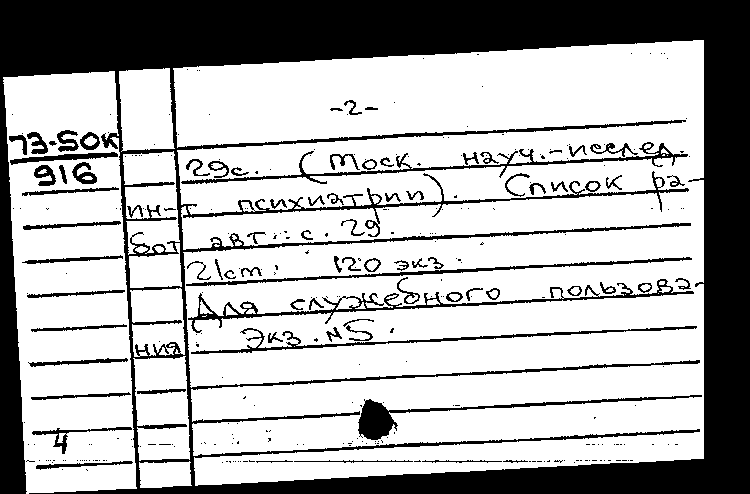 -2-
73-50К
916
29с. (Моск. науч.-исслед.
ин-т психиатрии). Список ра-
бот авт.: с. 29.
21см. 120 экз.
Для служебного пользова-
ния. Экз. №5.
4